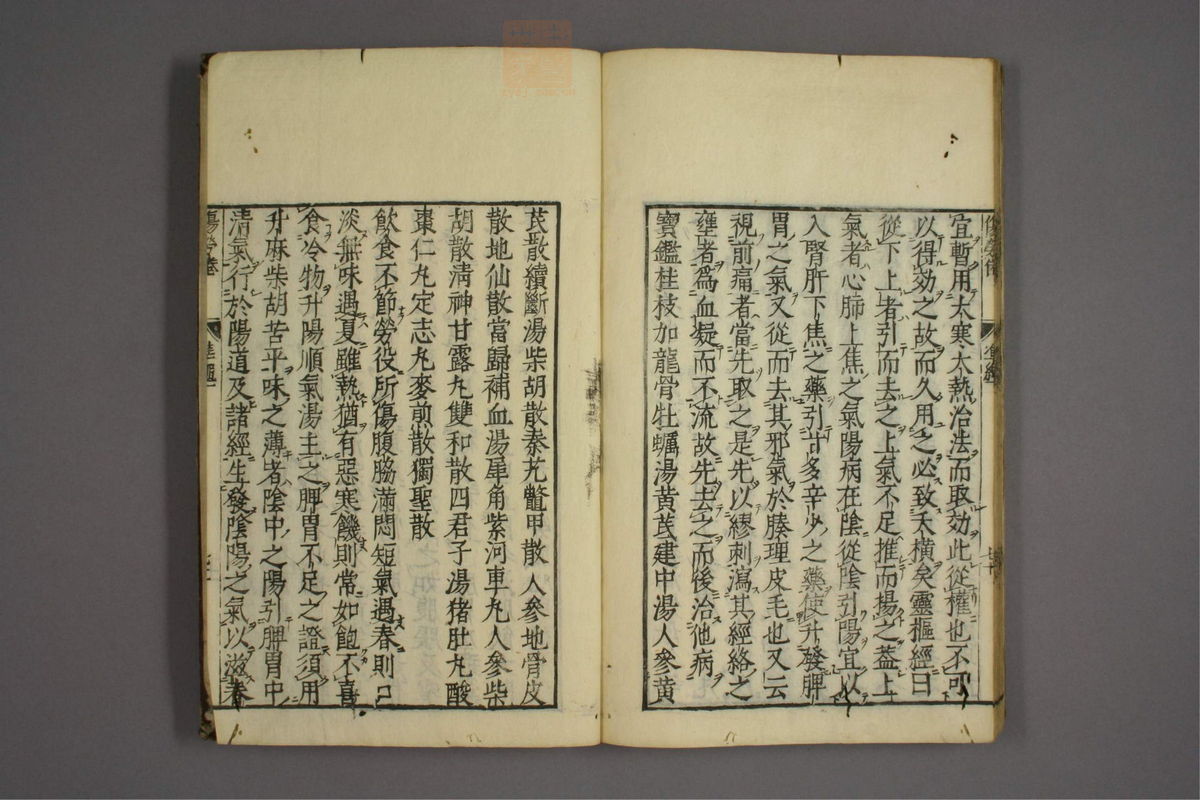 宜暫用大寒大熱治法而取効此從權也不可
以得効之故而久用之必致夭橫矣靈樞經曰
從下上者引而去之上氣不足推而揚之蓋上
氣者心肺上焦之氣陽病在陰從陰引陽宜以
入腎肝下焦之藥引甘多辛少之藥使升發脾
胃之氣又從而去其邪氣於腠理皮毛也又云
視前痛者當先取之是先以繆刺瀉其經絡之
壅者爲血凝而不流故先去之而後治他病
寶鑑桂枝加龍骨牡蠣湯黃芪建中湯人參黃
芪散續斷湯柴胡散秦艽鼈甲散人參地骨皮
散地仙散當歸補血湯犀角紫河車丸人參柴
胡散淸神甘露丸雙和散四君子湯猪肚丸酸
棗仁丸定志丸麥煎散獨聖散
飮食不節勞役所傷腹脇滿悶短氣遇春則口
淡無味遇夏雖熱猶有惡寒饑則常如飽不喜
食冷物升陽順氣湯主之脾胃不足之證須用
升麻柴胡苦平味之薄者陰中之陽引脾胃中
清氣行於陽道及諸經生發陰陽之氣以滋春